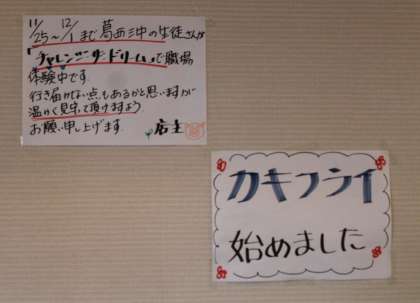 11/25〜12/1まで葛西三中の生徒さんが
「チャレンジ・ザ・ドリーム」で職場
体験中です。
行き届かない点もあるかと思いますが
温かく見守って頂けますよう
お願い申し上げます. 店主
カキフライ
始めました